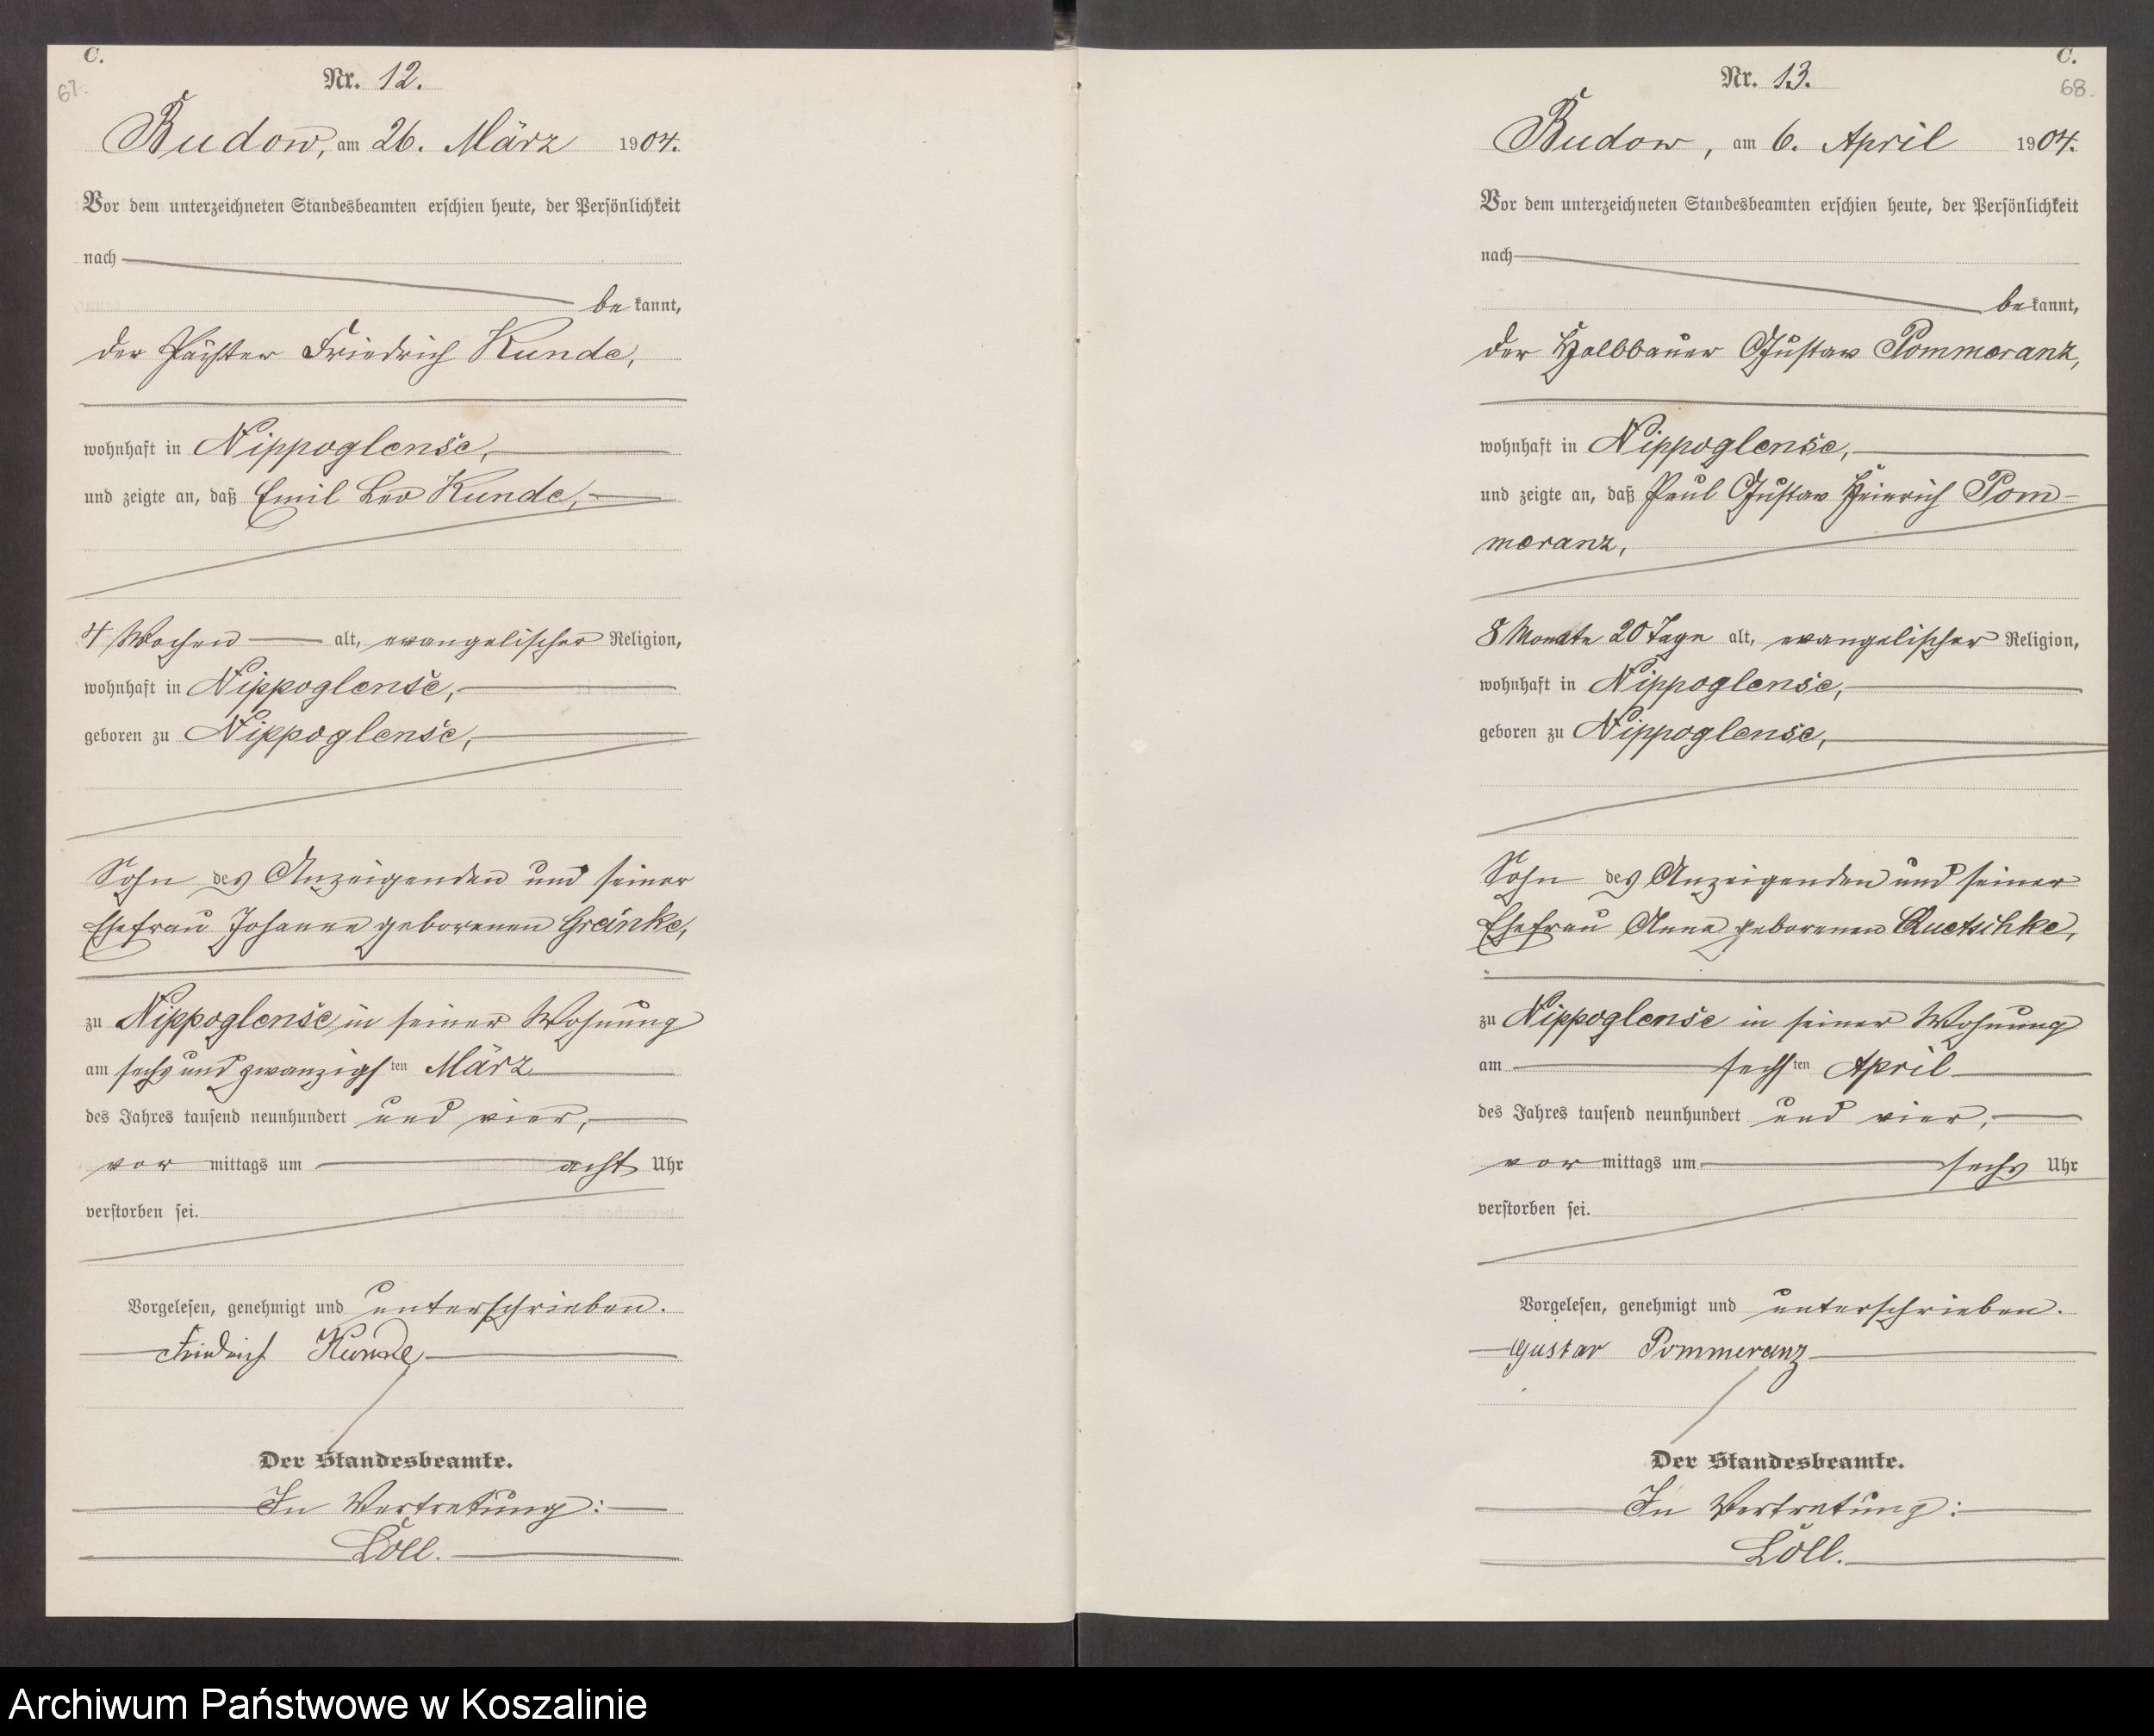 C.
67.
Nr. 12.
Budow, am 26. März 1904.
Vor dem unterzeichneten Standesbeamten erschien heute, der Persönlichkeit
nach
be kannt,
der Pächter Friedrich Kunde,
wohnhaft in Nippoglense,
und zeigte an, daß Emil Leo Kunde,
4 Wochen alt, evangelischer Religion,
wohnhaft in Nippoglense,
geboren zu Nippoglense,
Sohn des Anzeigenden und seiner
Ehefrau Johanne geborenen Greinke,
zu Nippoglense in seiner Wohnung
am sechsundzwanzigsten März
des Jahres tausend neunhundert und vier,
vor mittags um acht Uhr
verstorben sei.
Vorgelesen, genehmigt und unterschrieben.
Friedrich Kunde
Der Standesbeamte.
In Vertretung:
Löll.
C.
68.
Nr. 13.
Budow, am 6. April 1904.
Vor dem unterzeichneten Standesbeamten erschien heute, der Persönlichkeit
nach
be kannt,
der Halbbauer Gustav Pommeranz,
wohnhaft in Nippoglense,
und zeigte an, daß Paul Gustav Heinrich Pom-
meranz,
8 Monate 20 Tage alt, evangelischer Religion,
wohnhaft in Nippoglense,
geboren zu Nippoglense,
Sohn des Anzeigenden und seiner
Ehefrau Anna geborenen Quetschke,
zu Nippoglense in seiner Wohnung
am sechsten April
des Jahres tausend neunhundert und vier,
vor mittags um sechs Uhr
verstorben sei.
Vorgelesen, genehmigt und unterschrieben.
Gustav Pommeranz
Der Standesbeamte.
In Vertretung:
Löll.
Archiwum Państwowe w Koszalinie